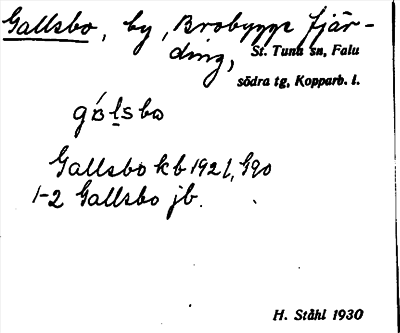 Gallsbo, by, Brobygge fjär-
ding,
St. Tuna sn, Falu
södra tg, Kopparb. l.
Gallsbo kb 1921, G90
1-2 Gallsbo jb.
H. Ståhl 1930